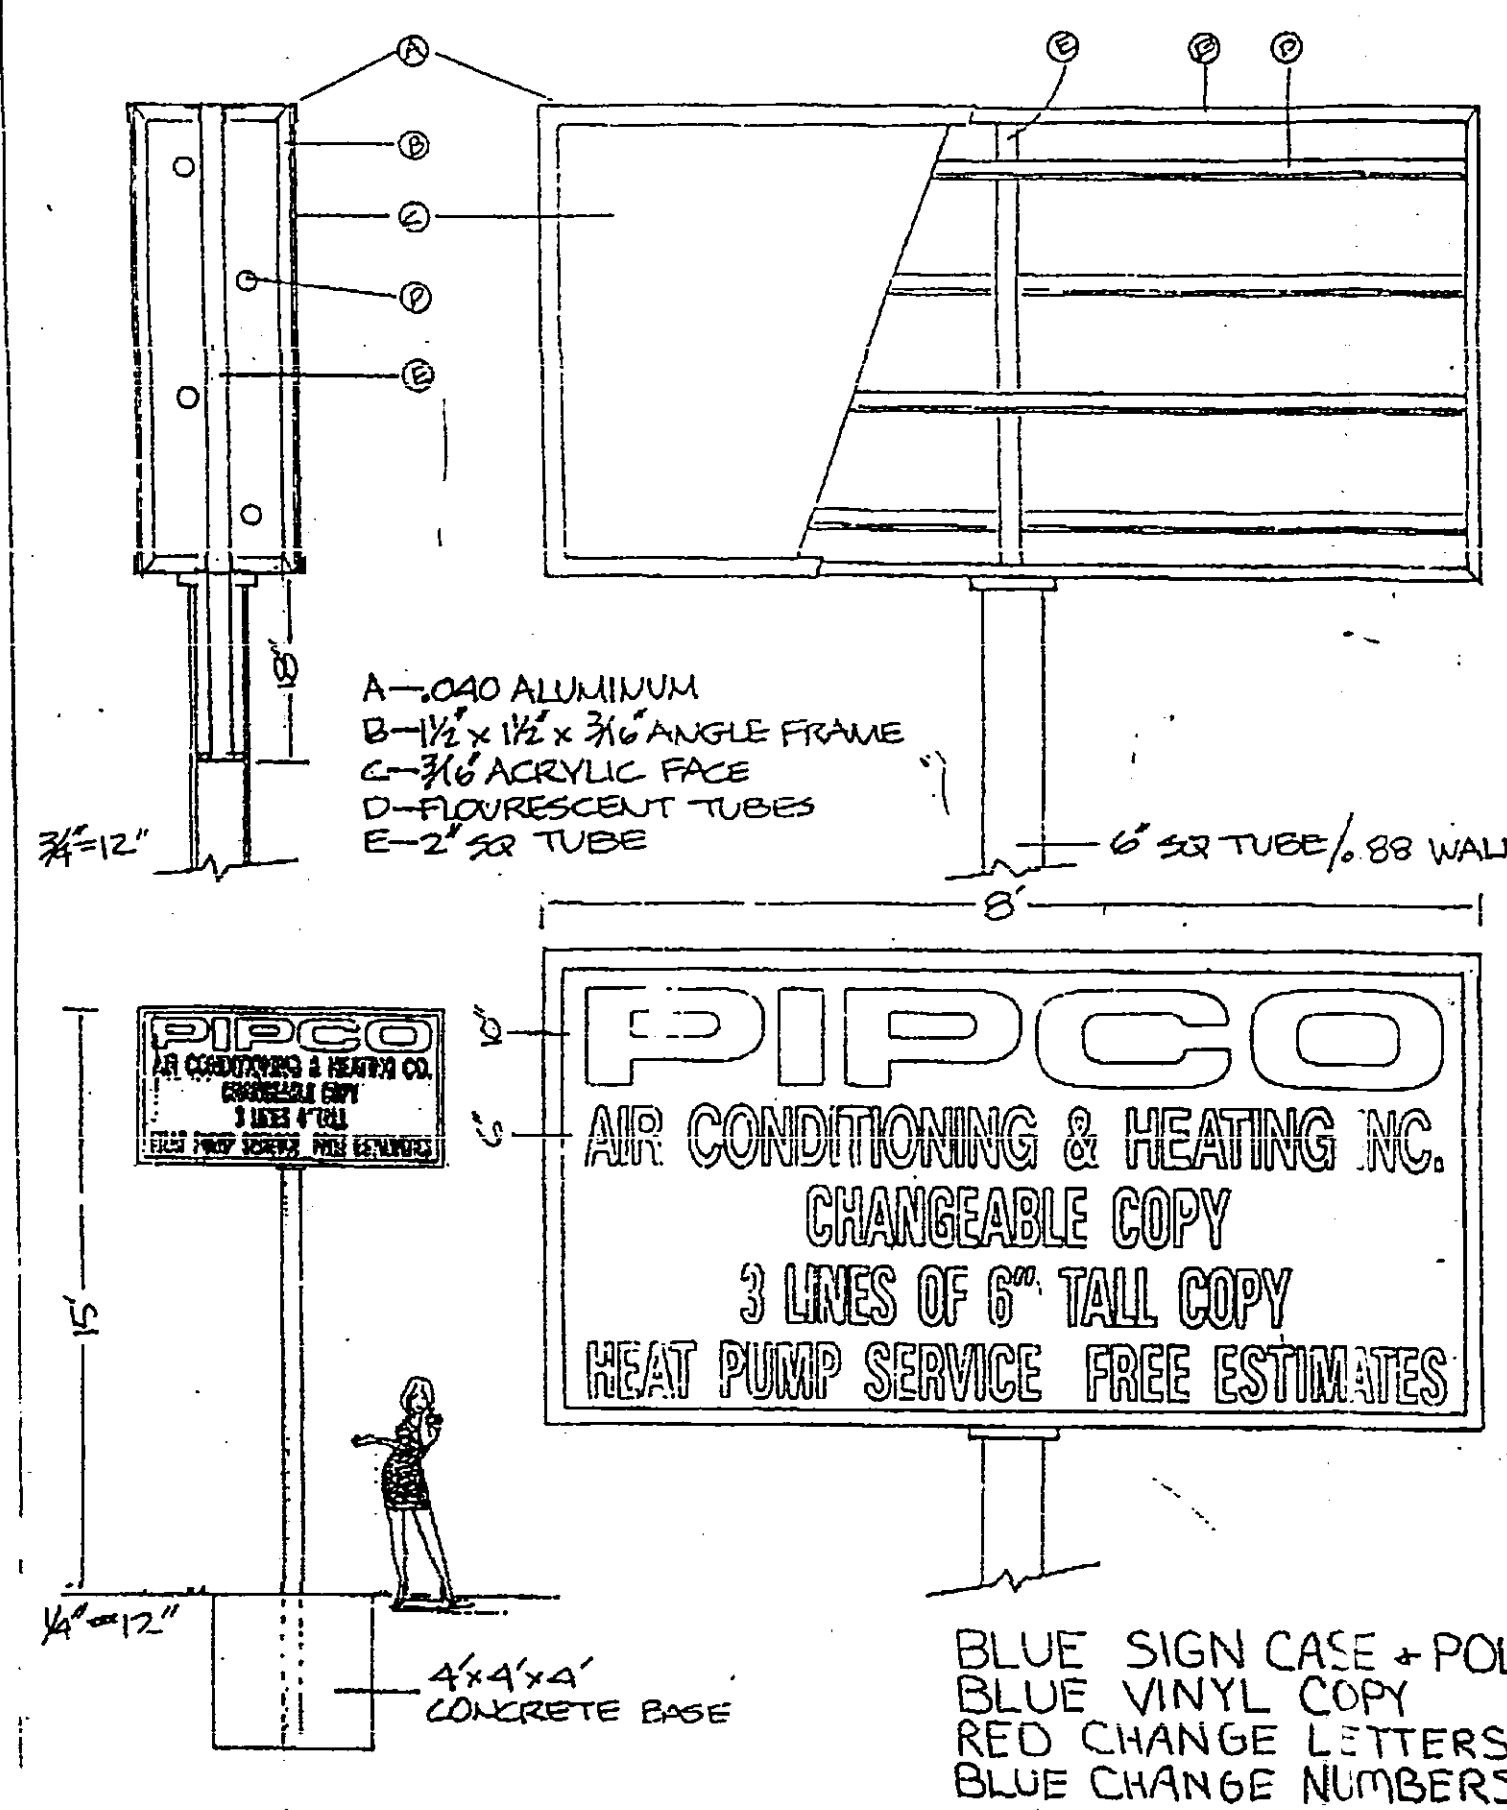 A
E
B
D
B
C
D
E
18"
A—.040 ALUMINUM
B—1½" x 1½" x 3/16" ANGLE FRAME
C—3/16" ACRYLIC FACE
D—FLOURESCENT TUBES
E—2" SQ TUBE
¾"=12"
6" SQ TUBE/.88 WALL
8'
PIPCO
AIR CONDITIONING & HEATING CO.
CHANGEABLE COPY
3 LINES 4" TALL
HEAT PUMP SERVICE FREE ESTIMATES
10"
6"
PIPCO
AIR CONDITIONING & HEATING INC.
CHANGEABLE COPY
3 LINES OF 6" TALL COPY
HEAT PUMP SERVICE FREE ESTIMATES
15'
¼"=12"
4'x4'x4'
CONCRETE BASE
BLUE SIGN CASE + POL
BLUE VINYL COPY
RED CHANGE LETTERS
BLUE CHANGE NUMBERS